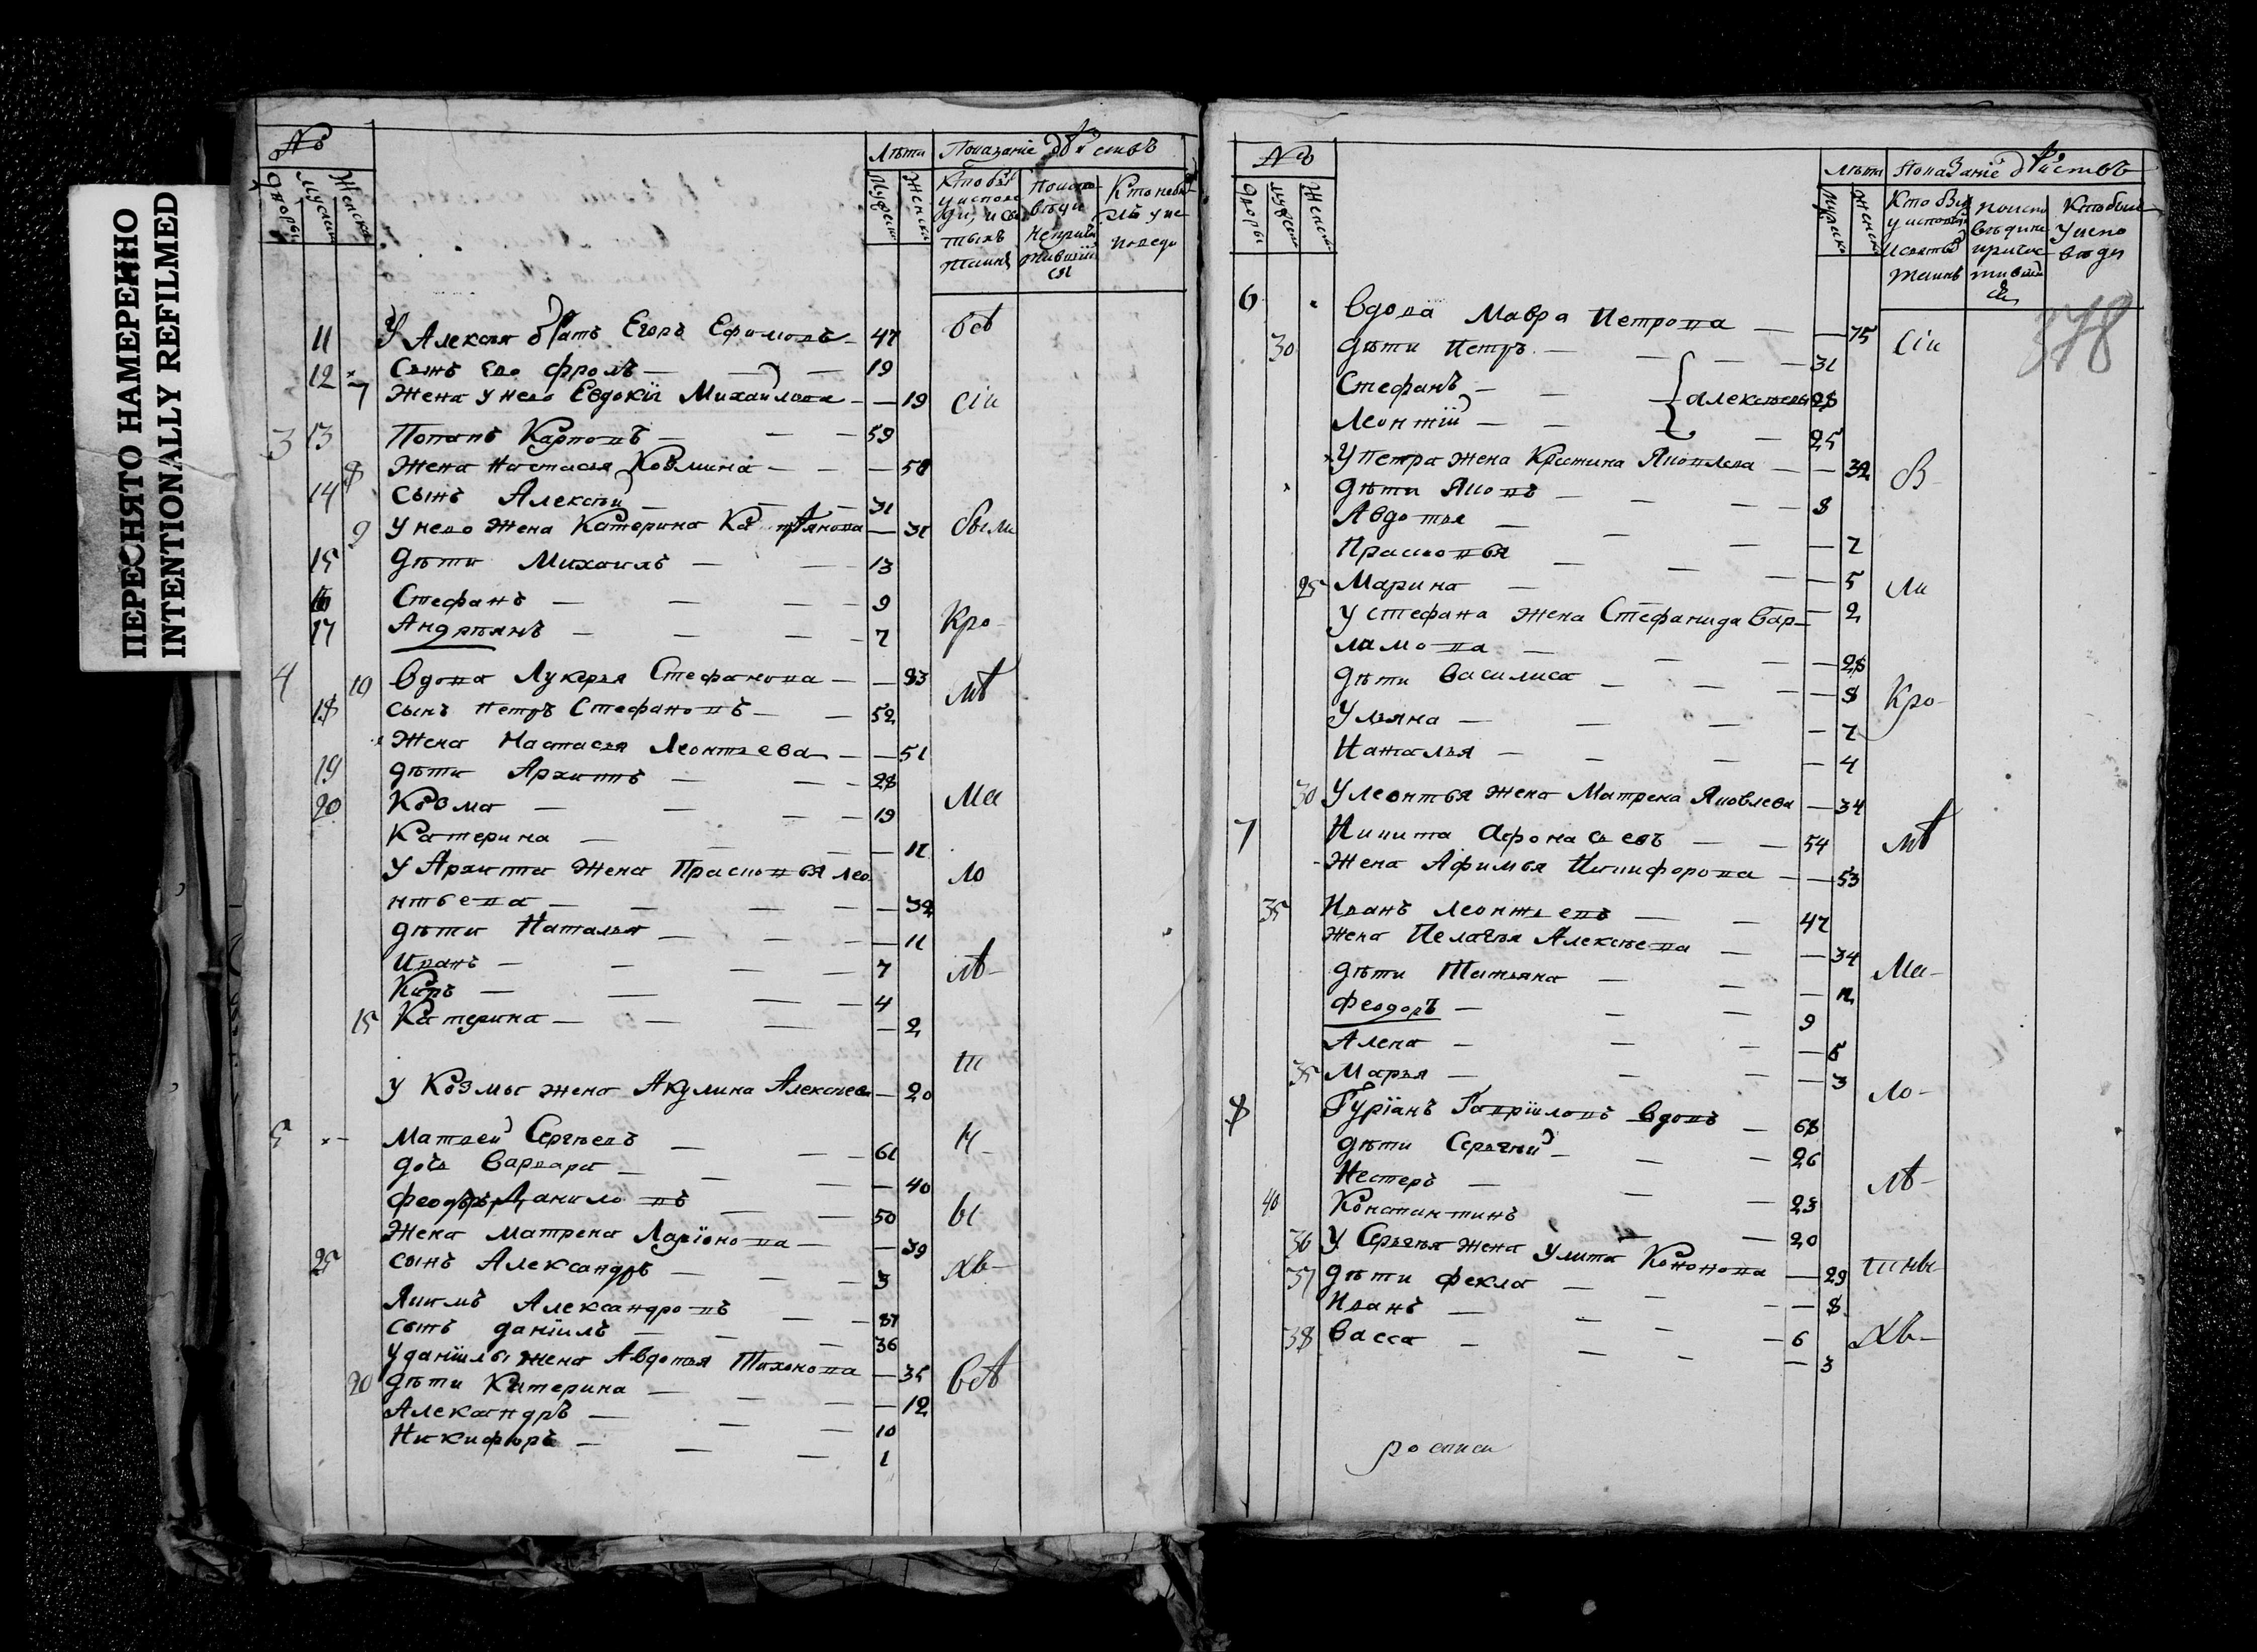 ПЕРЕСНЯТО НАМЕРЕННО
INTENTIONALLY REFILMED
№
Лѣта Показанїе дѣиствъ
дворы
мужескъ
Женскъ
Мужескъ
Женскъ
Кто бы у исповеди, и святыхъ таинъ
Кто небылъ у исповеди
11 У Алексѣя братъ Егоръ Ефимовъ — 47 всѣ
12 Сынъ Ево Фролъ — 19
7 Жена у нево Евдокїя Михаилова — 19 сїи
3 13 Потапъ Карповъ — 59
8 Жена Настасья Козмина — 58
14 сынъ Алексѣи — 31
9 у нево жена Катерина — 31 были
15 дѣти Михаилъ — 13
16 Стефанъ — 9
17 Андреянъ — 7 Кро-
4 10 вдова Лукерья Стефанова — 83 мѣ
18 сынъ Петръ Стефановъ — 52
Жена Настасья Леонтьева — 51
19 дѣти Архиппъ — 28
20 Козма — 19 Ма
Катерина — 12
У Архипа жена Прасковья лео 10
нтьева — 32
дѣти Наталья — 11
Иванъ — 7 лѣ-
Киръ — 4
15 Катерина — 2
т
у Козмы жена Акулина Алексѣева — 20
5 Матвеи Сергѣевъ — 61 н-
дочь Варвара — 40
Феодоръ Данило въ — 50 ы
Жена Матрена Ларїонова — 39
25 сынъ Александръ — 3 хъ-
Якимъ Александровъ — 87
сынъ данїилъ — 36
у данїилы жена Авдотья Тихонова — 35 всѣ
20 дѣти Катерина — 12
Александръ — 10
Никифоръ — 1
№
Лѣта показанїе дѣиствъ
дворы
мужескъ
Женскъ
Мужескъ
Женскъ
378
6 вдова Мавра Петрова — 75 сїи
30 дѣти Петръ — 31
Стефанъ — Алексѣевы 28
Леонтїи — 25
У Петра жена Кристина Яковлева — 32 в-
дѣти Яковъ — 8
Авдотья — 7
Прасковья — 5
25 Марина — 2 ли
у стефана жена Стефанида Вар-
ламова — 28
дѣти Василиса — 8 Кро-
Ульяна — 7
Наталья — 4
30 У леонтья жена Матрена Яковлева — 34
7 Никита Афонасьевъ — 54 мѣ
Жена Афимья Никифорова — 53
35 Иванъ Леонтьевъ — 47
Жена Пелагѣя Алексѣева — 34 Ма-
дѣти Татьяна — 12
Феодоръ — 9
Алена — 5
35 Марья — 3 ло-
8 Гурїанъ Гаврїиловъ вдовъ — 68
дѣти Сергѣи — 26
Нестеръ — 23 лѣ-
40 Константинъ — 20
36 У Сергѣя жена Улита Кононова — 29 тны
37 дѣти Фекла — 8
Иванъ — 6
38 Васса — 3 хъ-
росписи